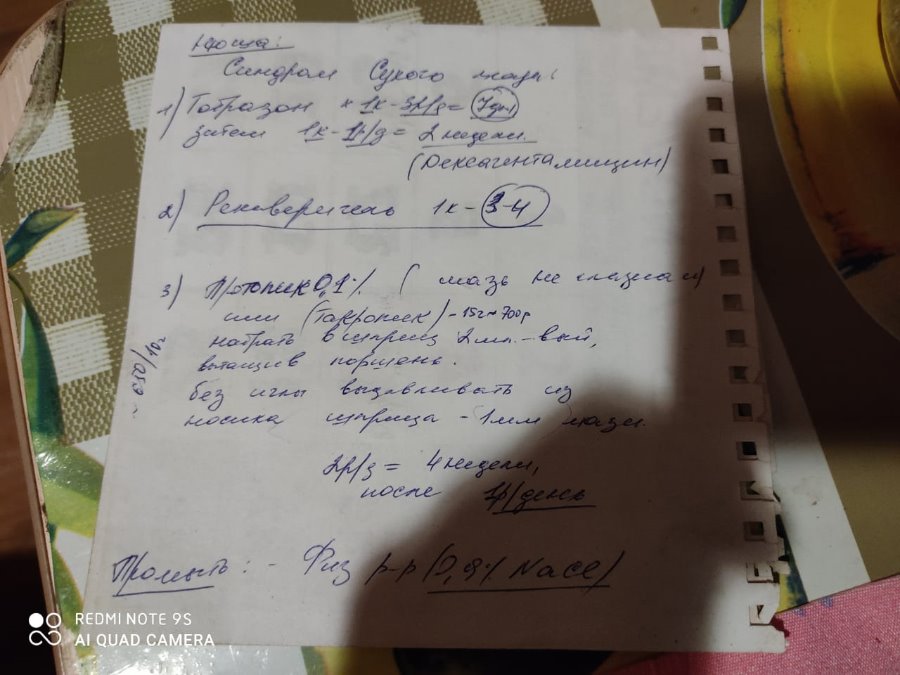 Юфоша:
Синдром Сухого глаза!
1) Тобразон к 1к-3р/д= 7дн.
затем 1к-1р/д= 2 недели.
(Дексагентамицин)
2) Рековеригель 1к- 3-4
3) Протопик 0,1% ( мазь не глазная)
или (Такропик) - 15г~700р
набрать в шприц 2мл.-вый,
вытащив поршень.
~ 650/10г
без иглы выдавливать из
носика шприца - 1мм мази.
2р/д= 4 недели,
после 1р/день
Промыть: - Физ р-р (0,9% NaCl)
REDMI NOTE 9S
AI QUAD CAMERA